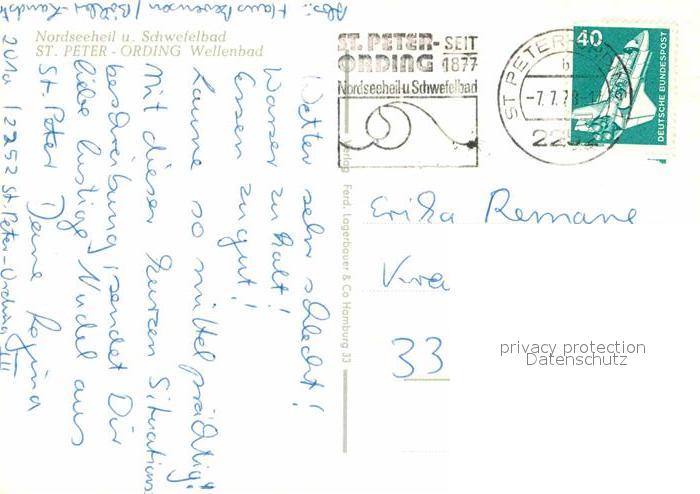 Nordseeheil u. Schwefelbad
ST. PETER - ORDING Wellenbad
ST. PETER- SEIT
ORDING 1877
Nordseeheil u. Schwefelbad
ST PETER-
b
-7.7.78-1
2252
40
DEUTSCHE BUNDESPOST
Abs.: Haus
2252 St. Peter-Ording
Wetter sehr schlecht!
Wasser zu kalt!
Essen zu gut!
Laune so mittelprächtig!
Mit dieser kurzen Situations-
beschreibung, sendet Dir
liebe lustige Nudel aus
St. Peter Deine Regina
Verlag Ferd. Lagerbauer & Co Hamburg 33
Erika Remane
33
privacy protection
Datenschutz